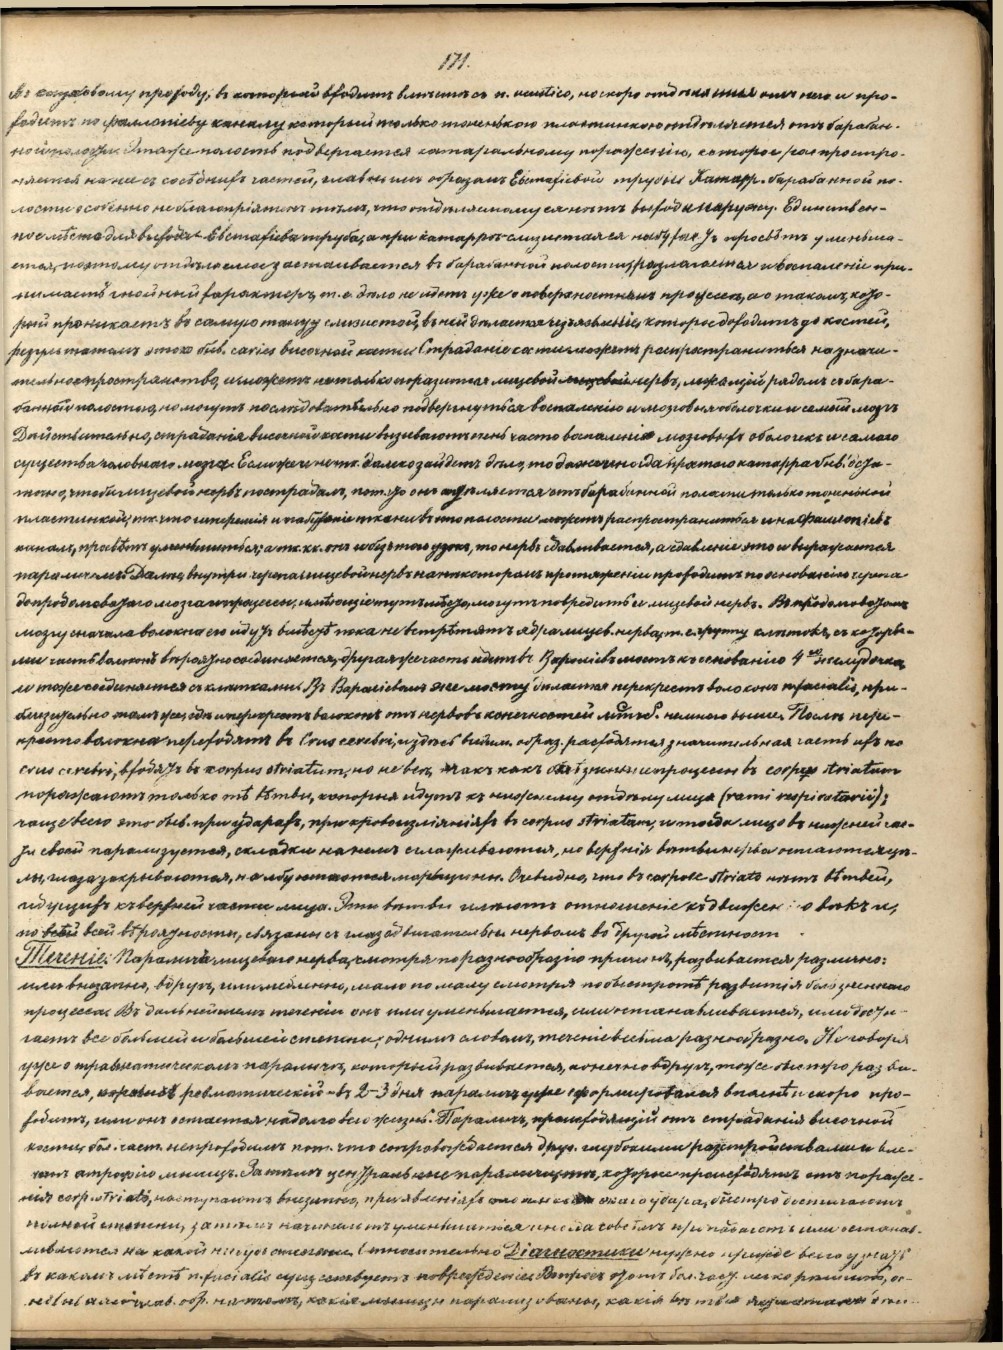 171.
слуховому проходу; въ который входитъ вмѣстѣ съ n. acustico, но скоро отдѣляется отъ него и про-
ходитъ по фаллопіеву каналу который только тоненькою пластинкою отдѣляется отъ барабан-
ной полости. Эта же полость подвергается катаральному пораженію, которое распростра-
няется на нее съ сосѣднихъ частей, главнымъ образомъ Евстафіевой трубы. Катарр. барабанной по-
лости особенно неблагопріятенъ тѣмъ, что отдѣляемому ея нѣтъ выхода наружу. Единствен-
ное мѣсто для выхода Евстафіева труба, а при катаррѣ слизистая ея набухаетъ просвѣтъ уменьша-
ется, поэтому отдѣляемое застаивается въ барабанной полости, разлагается и воспаленіе при-
нимаетъ гнойный характеръ, т. е. дѣло не идетъ уже о поверхностномъ процессѣ, а о такомъ, кото-
рый проникаетъ въ самую толщу слизистой, въ ней дѣлается изъязвленіе, которое доходитъ до костей,
результатомъ этого быв. caries височной кости. Страданіе кости можетъ распространиться на значи-
тельное пространство, и можетъ не только поразиться лицевой нервъ, лежащій рядомъ съ бара-
банной полостью, но могутъ послѣдовательно подвергнуться воспаленію и мозговыя оболочки и самый мозгъ
Дѣйствительно, страданія височной кости вызываютъ очень часто воспаленія мозговыхъ оболочекъ и самаго
существа головного мозга. Если же и не такъ далеко зайдетъ дѣло, то даже иногда простого катарра быв. доста-
точно, чтобы лицевой нервъ пострадалъ, пот. что онъ отдѣляется отъ барабанной полости только тоненькой
пластинкой, так. что гиперемія и набуханіе ткани въ этой полости можетъ распространиться и на Фаллопіевъ
каналъ, просвѣтъ уменьшиться; а так. как. онъ и безъ того узокъ, то нервъ сдавливается, а сдавленіе это и выражается
параличемъ. Далѣе, внутри черепа лицевой нервъ на нѣкоторомъ протяженіи проходитъ по основанію черепа
до продолговатаго мозга и процессы, имѣющіе тутъ мѣсто, могутъ повредить и лицевой нервъ. Въ продолговатомъ
мозгу сначала волокна его идутъ вмѣстѣ пока не встрѣтятъ ядра лицев. нерва, т. е. группу клѣтокъ, съ которы-
ми часть волоконъ вѣроятно соединяется, другая же часть идетъ въ Вароліевъ мостъ къ основанію 4го желудочка
и тоже соединяется съ клѣтками. Въ Вароліевомъ же мосту дѣлается перекрестъ волоконъ n. facialis, при-
близительно тамъ же, гдѣ и перекрестъ волоконъ отъ нервовъ конечностей м. б. немного выше. Послѣ пере-
креста волокна переходятъ въ Crus cerebri, и здѣсь видим. образ. расходятся значительная часть ихъ по
crus cerebri, входятъ въ corpus striatum, но не всѣ, такъ какъ болѣзненные процессы въ corpus striatum
поражаютъ только тѣ вѣтви, которыя идутъ къ нижнему отдѣлу лица (rami respiratorii);
чаще всего это быв. при ударахъ, при кровоизліяніяхъ въ corpus striatum, и тогда лицо въ нижней час-
ти своей парализуется, складки на немъ сглаживаются, но верхнія вѣтви нерва остаются цѣ-
лы, глаза закрываются, на лбу остаются морщины. Очевидно, что въ corpore striato нѣтъ вѣтвей,
идущихъ къ верхней части лица. Эти вѣтви имѣютъ отношеніе къ движен. вѣкъ и,
по всей вѣроятности, связаны съ глазодвигательн. нервомъ въ другой мѣстности.
Теченіе: Параличъ лицеваго нерва, смотря по разнообразію причинъ, развивается различно:
или внезапно, вдругъ, или медленно, мало по малу смотря по быстротѣ развитія болѣзненнаго
процесса. Въ дальнѣйшемъ теченіи онъ или уменьшается, или останавливается, или дости-
гаетъ все большей и большей степени; однимъ словомъ, теченіе весьма разнообразно. Не говоря
уже о травматическомъ параличѣ, который развивается, конечно вдругъ, тоже быстро разви-
вается, ревматическій - въ 2-3 дня параличъ уже сформировался вполнѣ и скоро про-
ходитъ, или онъ остается надолго всю жизнь. Параличъ, происходящій отъ страданія височной
кости, бол. част. непроходимъ пот. что сопровождается друг. глубокими разстройствами и вле-
четъ атрофію мышцъ. Затѣмъ центральные параличи, которые происходятъ отъ пораже-
нія corp. striati, наступаютъ внезапно, при явленіяхъ удара, быстро достигаютъ
полной степени, затѣмъ начинаютъ уменьшаться иногда совсѣмъ или останав-
ливаются на какой нибудь степени. Относительно Діагностики нужно прежде всего узнать
въ какомъ мѣстѣ n. facialis существуетъ поврежденіе. Вопросъ этотъ бол. част. легко рѣшить, ос-
новываясь глав. обр. на томъ, какія мышцы парализованы, какія вѣтви